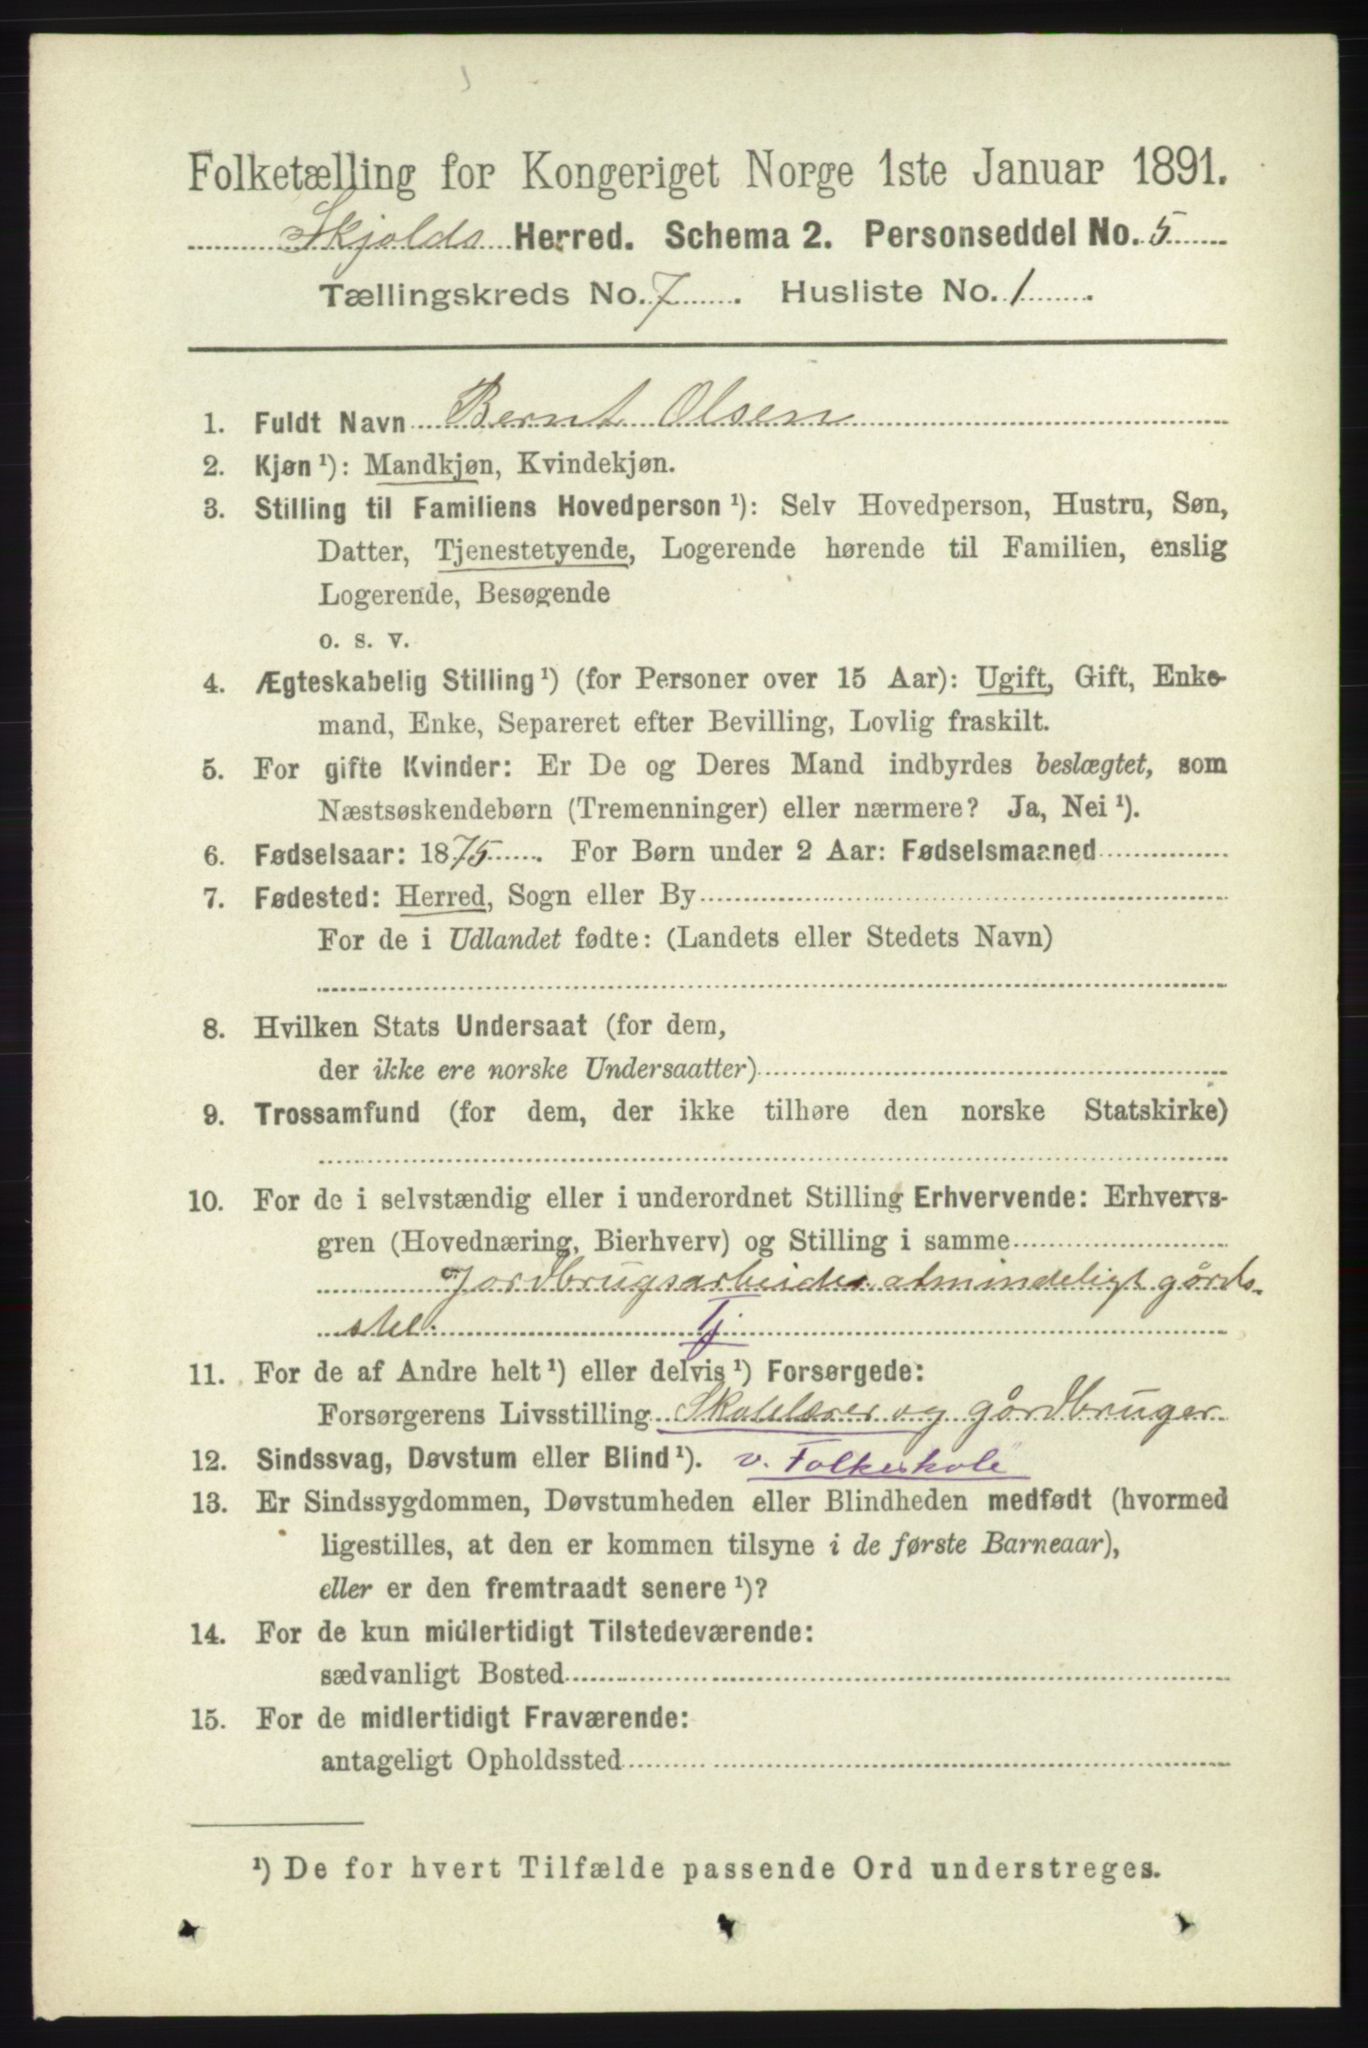 Folketælling for Kongeriget Norge 1ste Januar 1891.
Skjolds Herred. Schema 2. Personseddel No. 5
Tællingskreds No. 7 . Husliste No. 1 .
1. Fuldt Navn Bernt Olsen
2. Kjøn ¹): Mandkjøn, Kvindekjøn.
3. Stilling til Familiens Hovedperson ¹): Selv Hovedperson, Hustru, Søn,
Datter, Tjenestetyende, Logerende hørende til Familien, enslig
Logerende, Besøgende
o. s. v.
4. Ægteskabelig Stilling ¹) (for Personer over 15 Aar): Ugift, Gift, Enke-
mand, Enke, Separeret efter Bevilling, Lovlig fraskilt.
5. For gifte Kvinder: Er De og Deres Mand indbyrdes beslægtet, som
Næstsøskendebørn (Tremenninger) eller nærmere? Ja, Nei ¹).
6. Fødselsaar: 1875 . For Børn under 2 Aar: Fødselsmaaned
7. Fødested: Herred, Sogn eller By
For de i Udlandet fødte: (Landets eller Stedets Navn)
8. Hvilken Stats Undersaat (for dem,
der ikke ere norske Undersaatter)
9. Trossamfund (for dem, der ikke tilhøre den norske Statskirke)
10. For de i selvstændig eller i underordnet Stilling Erhvervende: Erhvervs-
gren (Hovednæring, Bierhverv) og Stilling i samme
Jordbrugsarbeide almindeligt gårds-
stel. Tj
11. For de af Andre helt ¹) eller delvis ¹) Forsørgede:
Forsørgerens Livsstilling Skolelærer og gårdbruger
12. Sindssvag, Døvstum eller Blind ¹). v. Folkeskole
13. Er Sindssygdommen, Døvstumheden eller Blindheden medfødt (hvormed
ligestilles, at den er kommen tilsyne i de første Barneaar),
eller er den fremtraadt senere ¹)?
14. For de kun midlertidigt Tilstedeværende:
sædvanligt Bosted
15. For de midlertidigt Fraværende:
antageligt Opholdssted
¹) De for hvert Tilfælde passende Ord understreges.